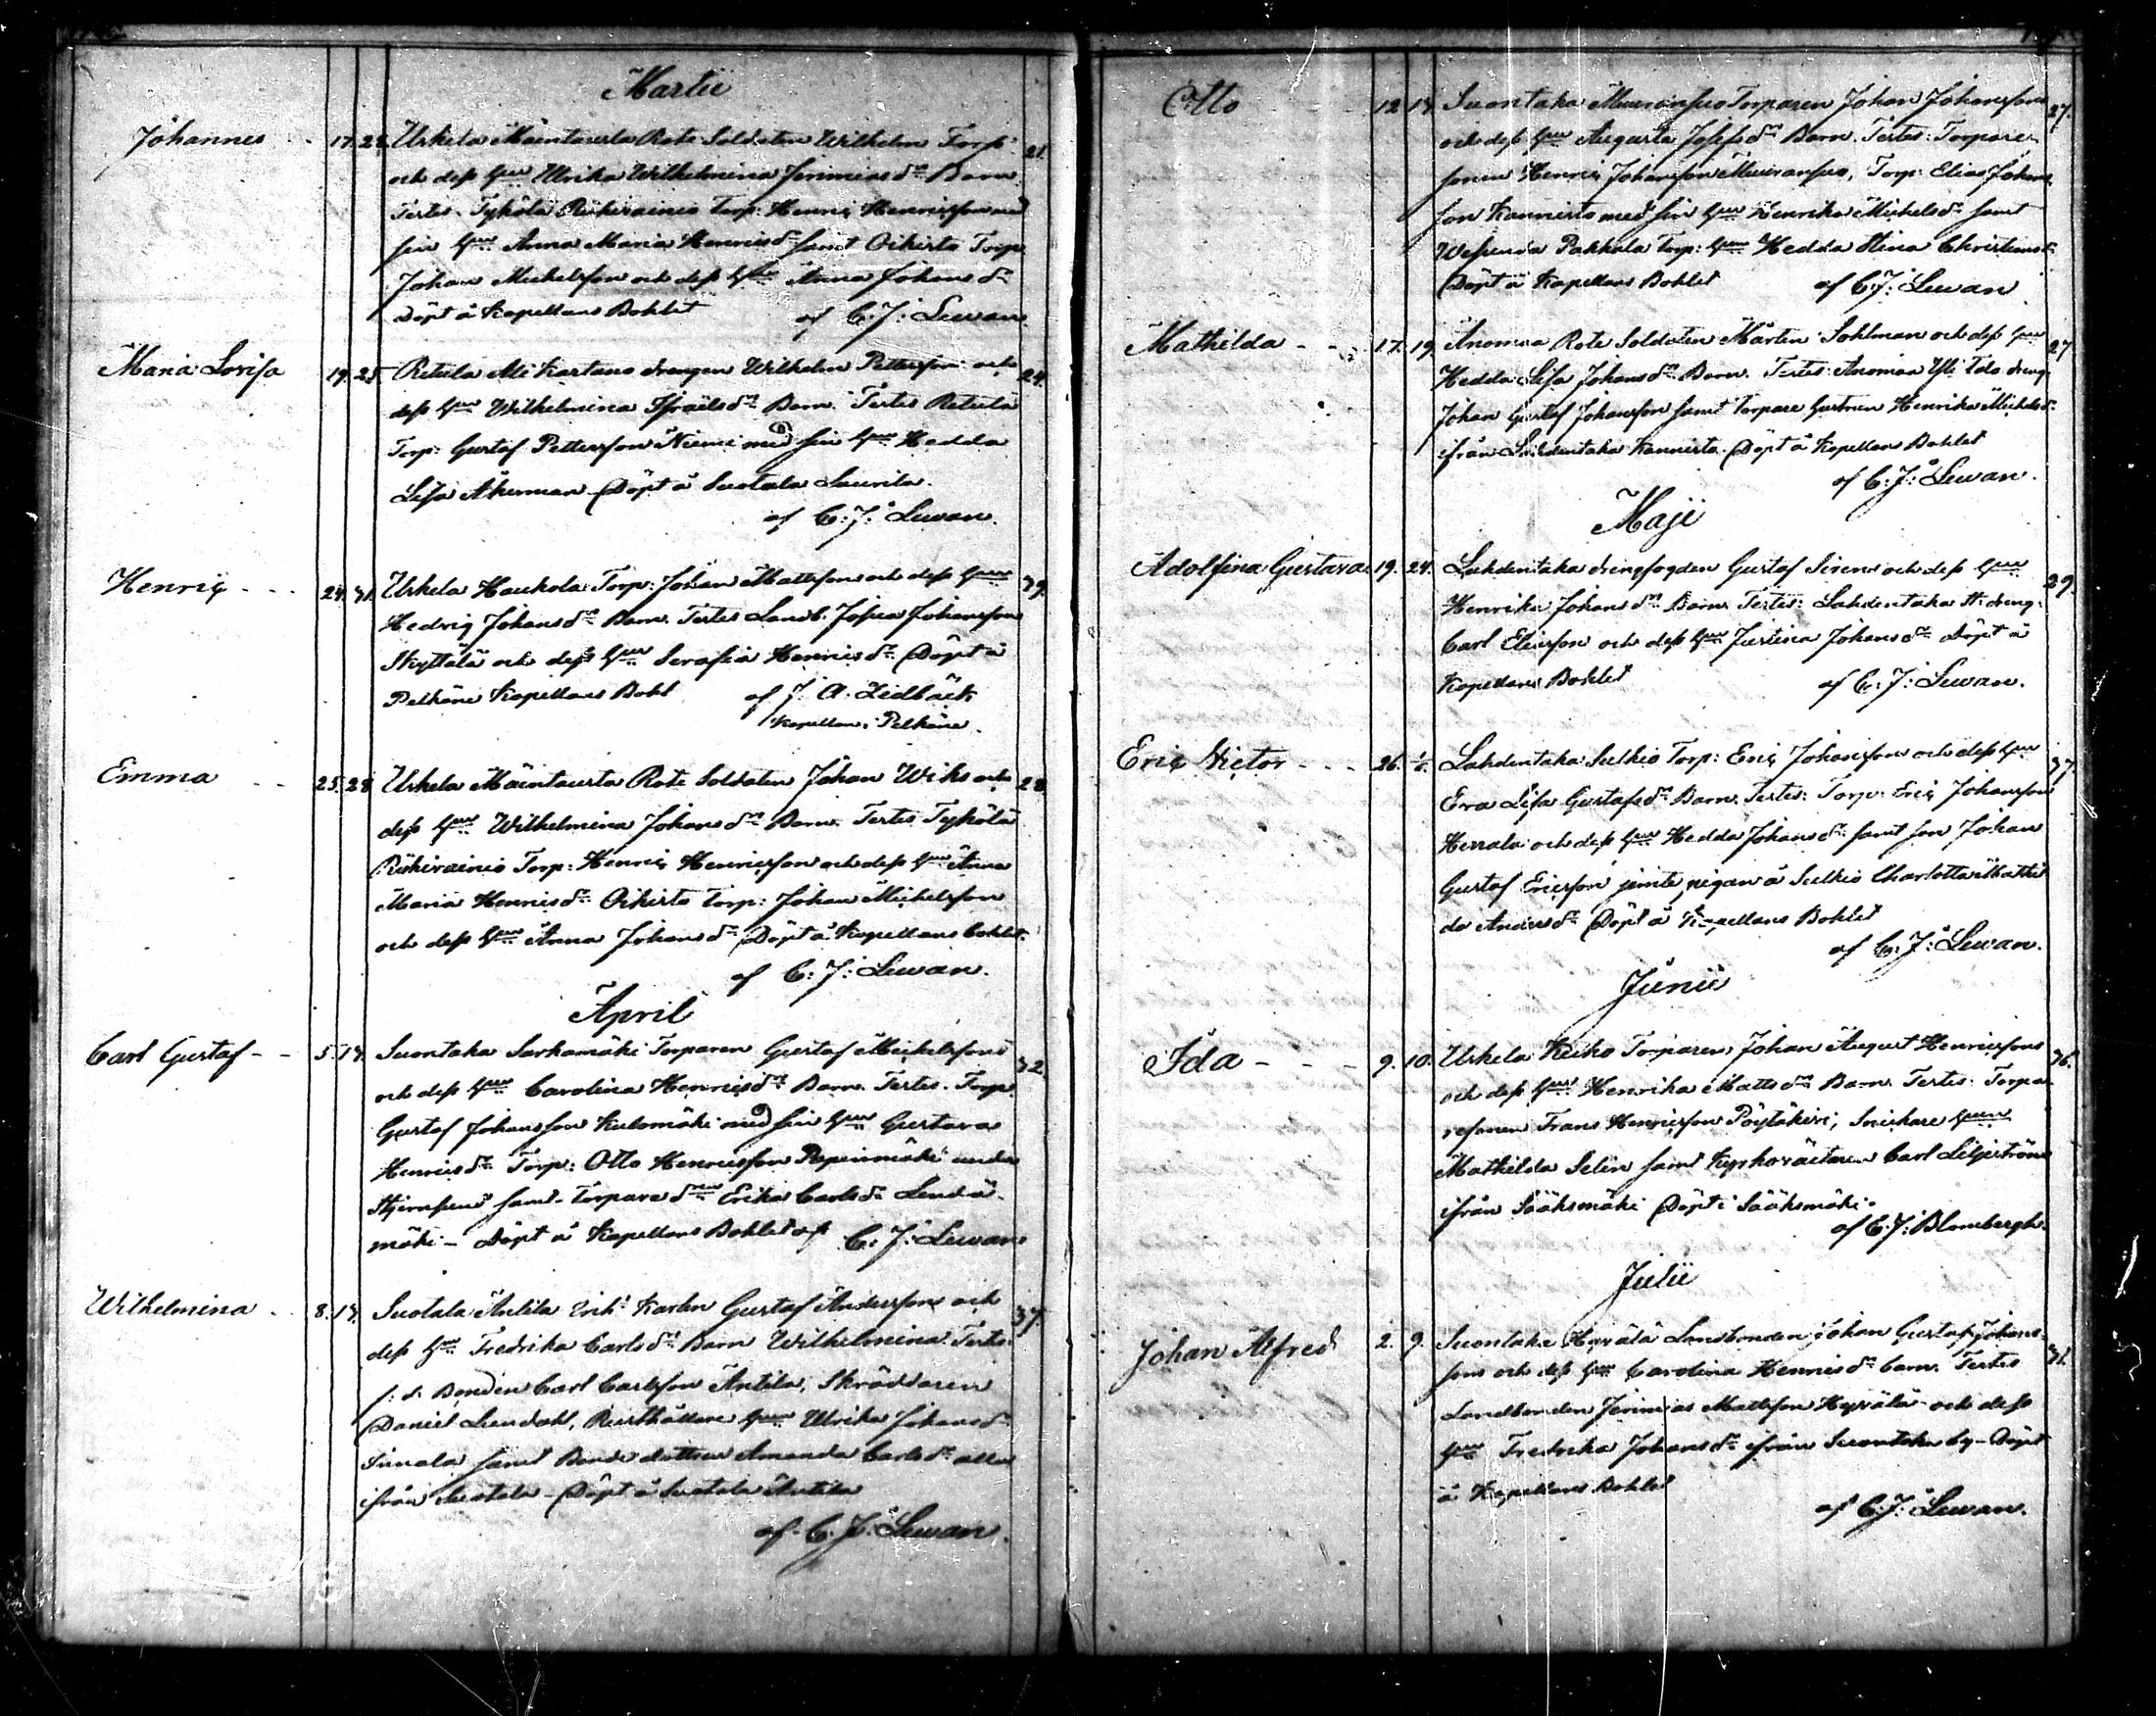 Martii
Johannes 17. 25. Urkela Mäentausta Rote Soldaten Wilhelm Torp 21.
och dess hu Ulrika Wilhelmina Jerimiasdr Barn
Testes. Tykölä Riihivainio Torp: Henric Henricsson med
sin hu Anna Maria Henricsdr samt Oikirto Torp
Johan Michelsson och dess hu Anna Johansdr
Döpt å Kapellans Bohlet af C: J: Lewan
Maria Lovisa 19. 25. Retula Ali Kartano drengen Wilhelm Pettersson och 24.
dess hu Wilhelmina Israelsdr Barn. Testes Retula
Torp: Gustaf Pettersson Niemi med sin hu Hedda
Lisa Åkerman. Döpt å Suotala Laurila.
af C: J: Lewan.
Henric 24. 31. Urkela Haukola Torp: Johan Mattsson och dess hu 39.
Hedvig Johansdr Barn. Testes Landb. Josua Johansson
Skyttälä och dess hu Serafia Henricsdr Döpt å
Pelkäne Kapellans Bohl af J. A. Lidbäck
Kapellan i Pelkäne.
Emma 25. 28. Urkela Mäentausta Rote Soldaten Johan Wiks och 28
dess hu Wilhelmina Johansdr Barn. Testes Tykölä
Riihivainio Torp: Henric Henricsson och dess hu Anna
Maria Henricsdr Oikirto Torp: Johan Michelsson
och dess hu Anna Johansdr Döpt å Kapellans Bohlet.
af C: J: Lewan.
April
Carl Gustaf 5. 17. Suontaka Sarkamäki Torparen Gustaf Michelssons 32.
och dess hu Carolina Henricsdr Barn. Testes. Torp.
Gustaf Johansson Kulomäki med sin hu Gustava
Henricsdr Torp: Otto Henricsson Papinmäki under
samt Torpare Erika Carlsdr Lendä-
mäki – Döpt å Kapellans Bohlet af C: J: Lewan
Wilhelmina 8. 17. Suotala Antila Karlen Gustaf Andersson och 37.
dess hu Fredrika Carlsdr Barn Wilhelmina. Testes
f: d: Bonden Carl Carlsson Antila, Skräddaren
Daniel Lundahl, Rusthållare hu Ulrika Johansdr
samt Bonde dottren Amanda Carlsdr alla
ifrån Suotala – Döpt å Suotala Antila
af C. J. Lewan.
Otto 12. 17. Suontaka Muuronsuo Torparen Johan Johansson 27.
och dess hu Augusta Josefsdr Barn. Testes: Torpare-
sonen Henric Johansson Muuronsuo, Torp: Elias Johans-
son Kannisto med sin hu Henrika Michelsdr samt
Wesunda Pakkala Torp: hu Hedda Stina Christiansdr
Döpt å Kapellans Bohlet af C: J: Lewan
Mathilda 17. 19. Anomaa Rote Soldaten Mårten Sohlman och dess hu 27
Hedda Lisa Johansdr Barn. Testes: Anomaa Yli Ido dreng.
Johan Gustaf Johansson samt Torpare hustrun Henrika Michelsdr
ifrån Lahdentaka Kannisto. Döpt å Kapellans Bohlet
af C: J: Lewan.
Maji
Adolfina Gustava 19. 24. Lahdentaka drengfogden Gustaf Sirens och dess hu 29.
Henrika Johansdr Barn. Testes: Lahdentaka dreng.
Carl Eliasson och dess hu Justina Johansdr Döpt å
Kapellans Bohlet af C: J: Lewan.
Eric Victor 26. 1/6. Lahdentaka Sulkio Torp: Eric Johansson och dess hu 37.
Eva Lisa Gustafsdr Barn. Testes: Torp. Eric Johansson
Herrala och dess hu Hedda Johansdr samt son Johan
Gustaf Ericsson jemte pigan å Sulkio Charlotta Mathil-
da Andersdr Döpt å Kapellans Bohlet
af C: J: Lewan.
Junii
Ida 9. 10. Urkela Keiho Torparen Johan August Henricssons 36.
och dess hu Henrika Mattsdr Barn. Testes: Torpa-
resonen Frans Henricsson Pöytäkivi, Snickare hun
Mathilda Selin samt Kyrkoväktaren Carl Liljeström
ifrån Sääksmäki Döpt i Sääksmäki.
af C: J: Blombergh.
Julii
Johan Alfred 2. 9. Suontaka Hyvälä Landbonden Johan Gustaf Johans- 31.
sons och dess hu Carolina Henricsdr barn. Testes
Landbonden Jerimias Mattsson Hyvälä och dess
hu Fredrika Johansdr ifrån Suontaka by – Döpt
å Kapellans Bohlet
af C: J: Lewan.